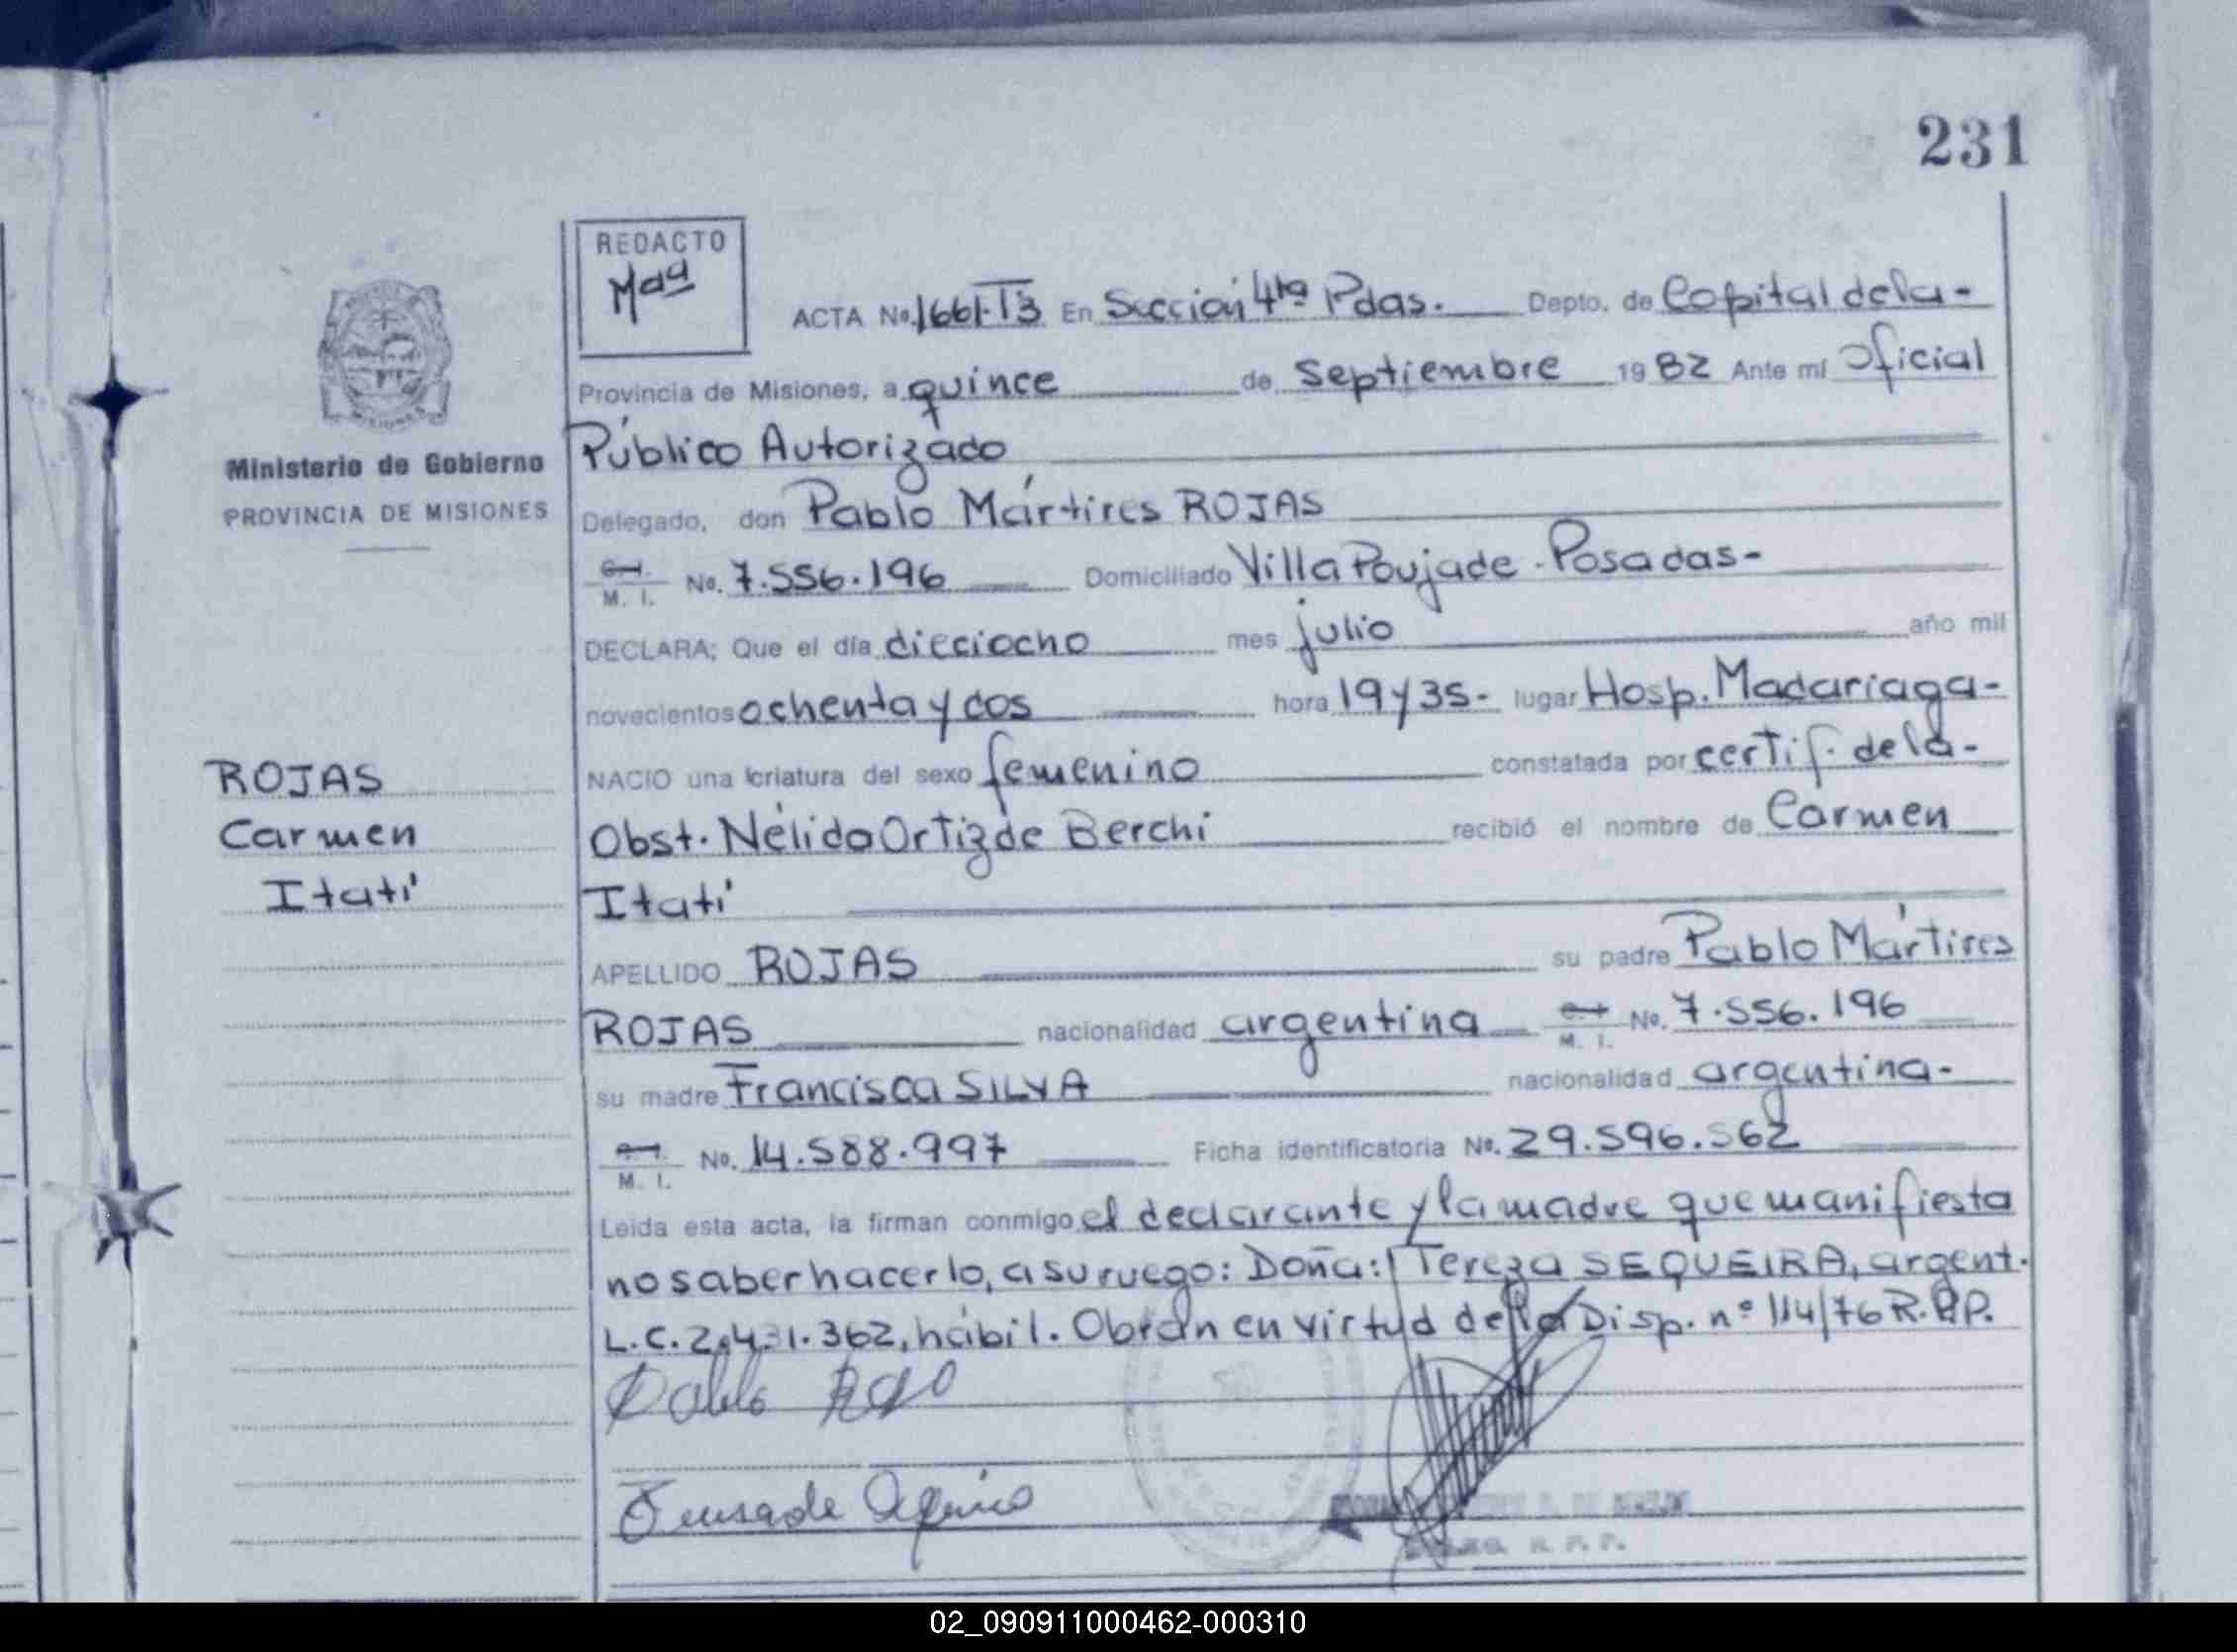 231
REDACTO
ACTA No. 1661-T3 En Sección 4ta Pdas. Depto. de Capital dela-
Provincia de Misiones, a quince de septiembre 1982 Ante mí Oficial
Público Autorizado
Ministerio de Gobierno
PROVINCIA DE MISIONES
Delegado, don Pablo Mártires ROJAS
C.I. M. I. No. 7.556.196 Domiciliado Villa Poujade - Posadas-
DECLARA: Que el día dieciocho mes julio año mil
novecientos ochenta y dos hora 19 y 35- lugar Hosp. Madariaga-
NACIO una criatura del sexo femenino constatada por certif. de la-
Obst. Nélida Ortiz de Berchi recibió el nombre de Carmen
Itatí
ROJAS
Carmen
Itatí
APELLIDO ROJAS su padre Pablo Mártires
ROJAS nacionalidad argentina M. I. No. 7.556.196
su madre Francisca SILVA nacionalidad argentina-
M. I. No. 14.588.997 Ficha identificatoria No. 29.596.562
Leida esta acta, la firman conmigo el declarante y la madre que manifiesta
no saber hacerlo, a su ruego: Doña: Tereza SEQUEIRA, argent.
L.C. 2.431.362, hábil. Obran en virtud de la Disp. n° 114/76 R.P.P.
Pablo
02_090911000462-000310